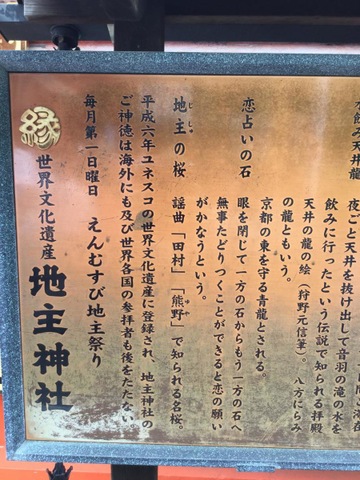 天井の龍の絵（狩野元信筆）。八方にらみ
の龍ともいう。
夜ごと天井を抜け出して音羽の滝の水を
飲みに行ったという伝説で知られる拝殿
京都の東を守る青龍とされる。
恋占いの石
眼を閉じて一方の石からもう一方の石へ
無事たどりつくことができると恋の願い
がかなうという。
地主の桜 謡曲「田村」「熊野」で知られる名桜。
じしゅ
ゆや
平成六年ユネスコの世界文化遺産に登録され、地主神社の
ご神徳は海外にも及び世界各国の参拝者も後をたたない
毎月第一日曜日 えんむすび地主祭り
縁
世界文化遺産
地主神社